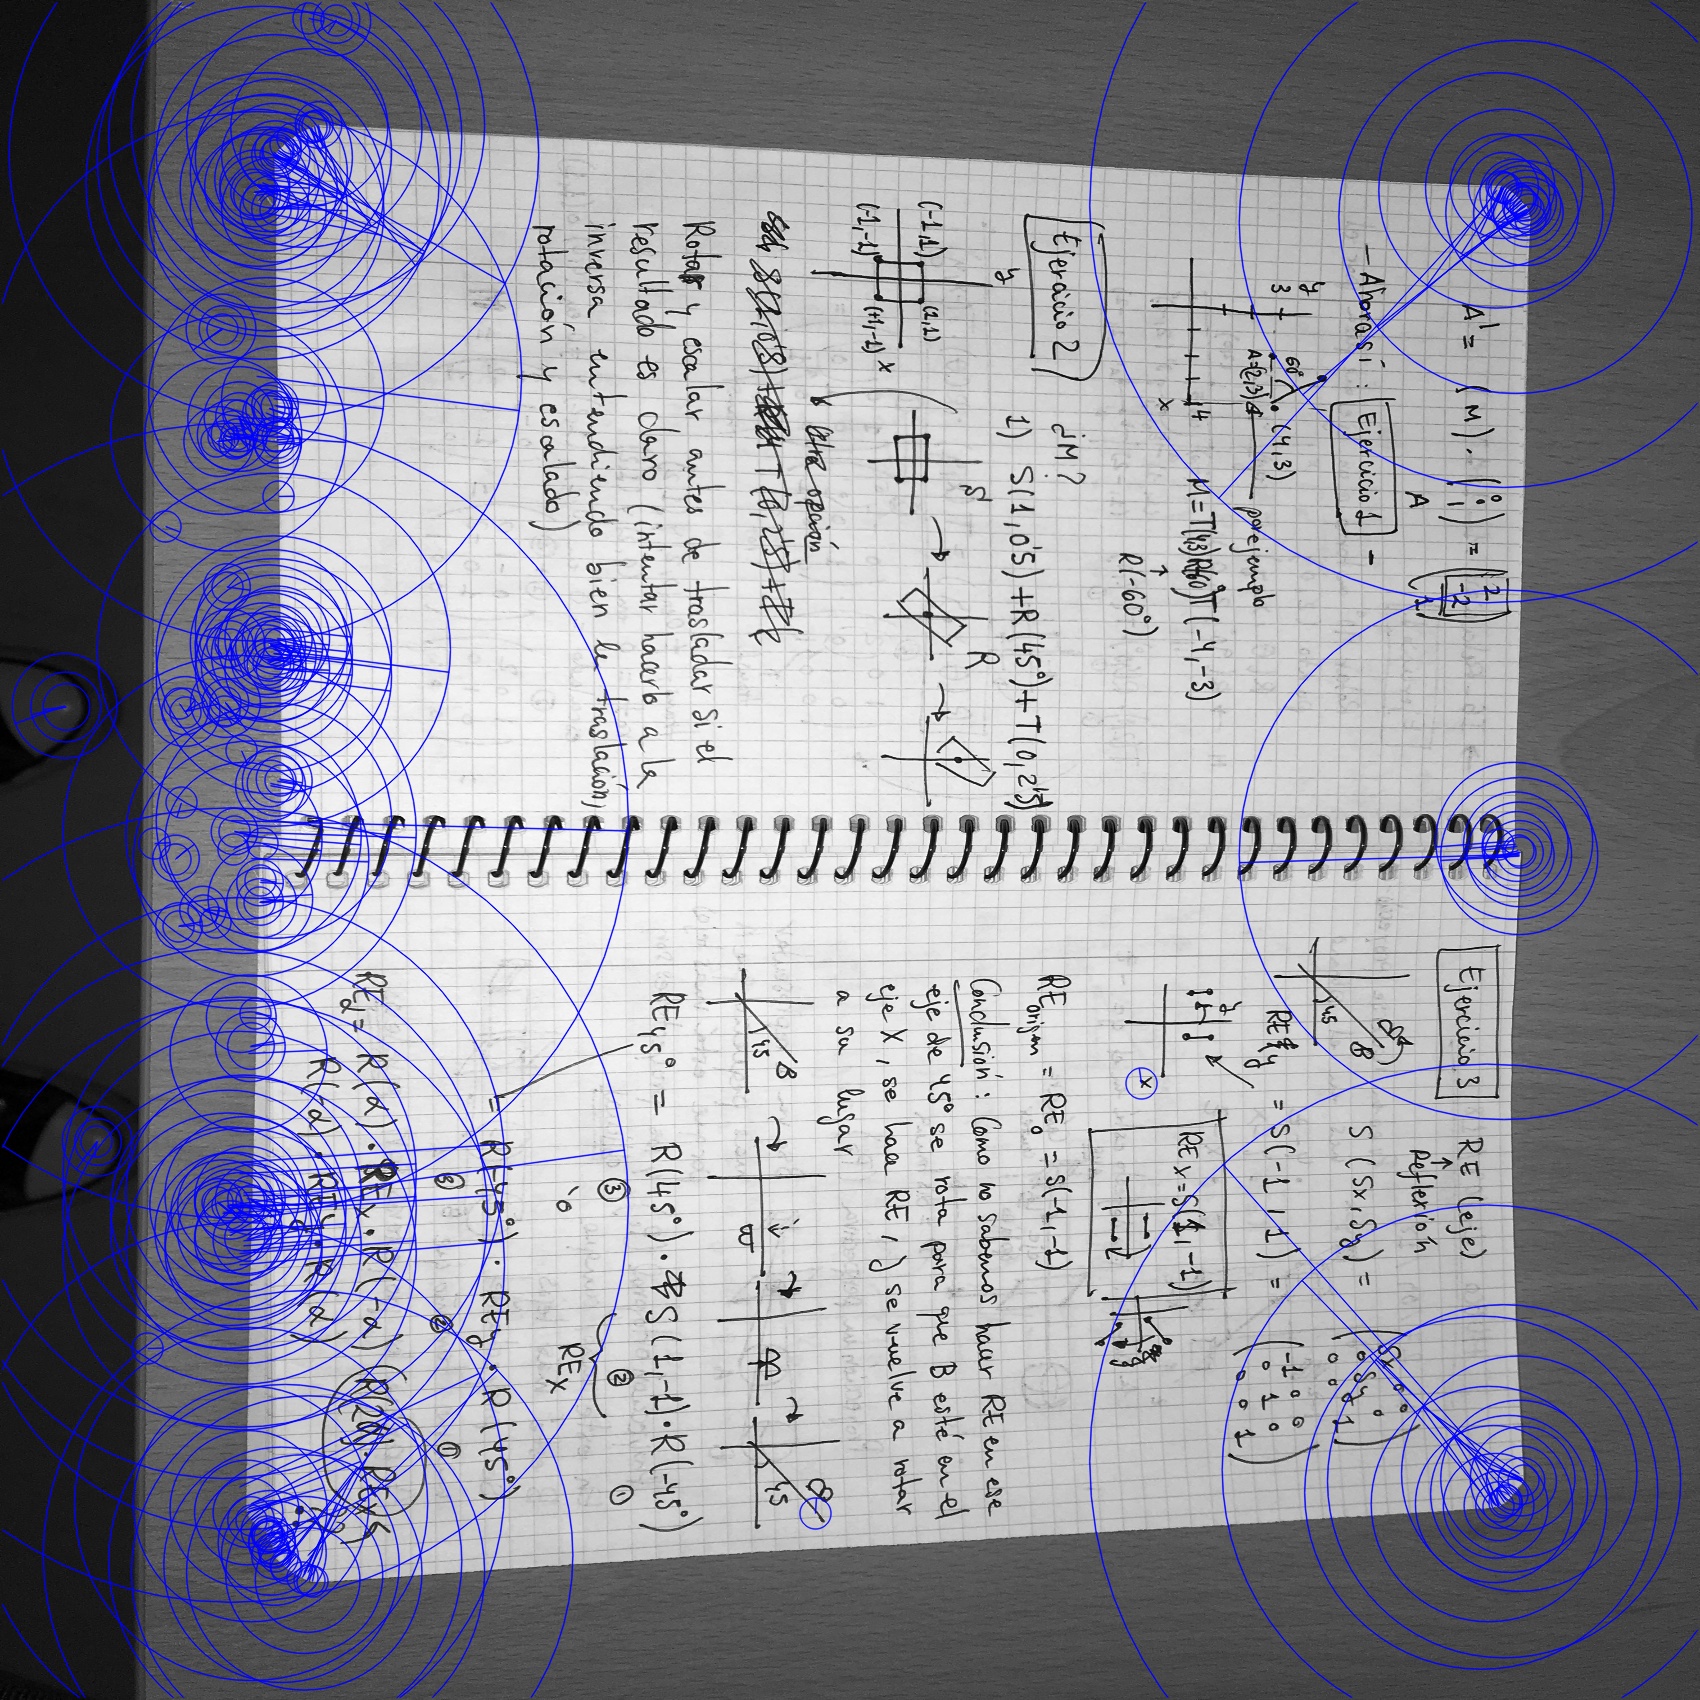 A' = (M) · (0 0 1) = (2 -2 1)
A
- Ahora sí: Ejercicio 1 -
y
3
60°
(4,3)
A=(2,3)
por ejemplo
4
x
M = T(4,3) R(60°) T(-4,-3)
R(-60°)
Ejercicio 2
¿M?
1) S(1,0'5) + R(45°) + T(0,2'5)
y
S
R
(-1,1)
(1,1)
(-1,-1)
(+1,-1)
x
Otra opción
Rotar y escalar antes de trasladar si el
resultado es claro (intentar hacerlo a la
inversa entendiendo bien la traslación,
rotación y escalado)
Ejercicio 3
RE (eje)
Reflexión
45
B
S(Sx,Sy) =
(Sx 0 0
0 Sy 0
0 0 1)
REy = S(-1,1) =
(-1 0 0
0 1 0
0 0 1)
y
x
REx = S(1,-1)
REorigen = RE0 = S(-1,-1)
Conclusión: Como no sabemos hacer RE en ese
eje de 45° se rota para que B esté en el
eje X, se hace RE, y se vuelve a rotar
a su lugar
45
B
B
B
45
RE45° = R(45°) · S(1,-1) · R(-45°)
③ ② ①
REx
ó
= R(-45°) · REy · R(45°)
③ ② ①
REα = R(α) · REx · R(-α)
R(-α) · REy · R(α)